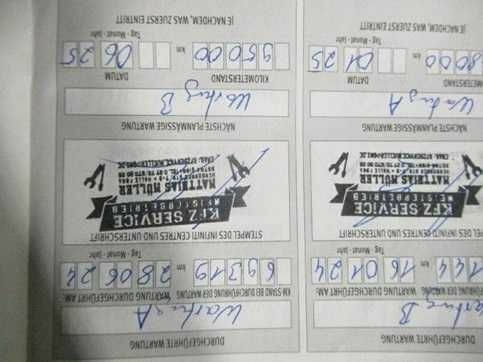 DURCHGEFÜHRTE WARTUNG
Wartung B
DURCHGEFÜHRT AM:
144 km 16 01 24
Tag - Monat - Jahr
STEMPEL DES INFINITI CENTRES UND UNTERSCHRIFT
KFZ SERVICE
MEISTERBETRIEB
MATTHIAS MÜLLER
NÄCHSTE PLANMÄSSIGE WARTUNG
Wartung A
DATUM
8000 km 01 25
Tag - Monat - Jahr
JE NACHDEM, WAS ZUERST EINTRITT
DURCHGEFÜHRTE WARTUNG
Wartung A
KM-STAND BEI DURCHFÜHRUNG DER WARTUNG DURCHGEFÜHRT AM:
69319 km 28 06 24
Tag - Monat - Jahr
STEMPEL DES INFINITI CENTRES UND UNTERSCHRIFT
KFZ SERVICE
MEISTERBETRIEB
MATTHIAS MÜLLER
NÄCHSTE PLANMÄSSIGE WARTUNG
Wartung B
KILOMETERSTAND DATUM
95000 km 06 25
Tag - Monat - Jahr
JE NACHDEM, WAS ZUERST EINTRITT